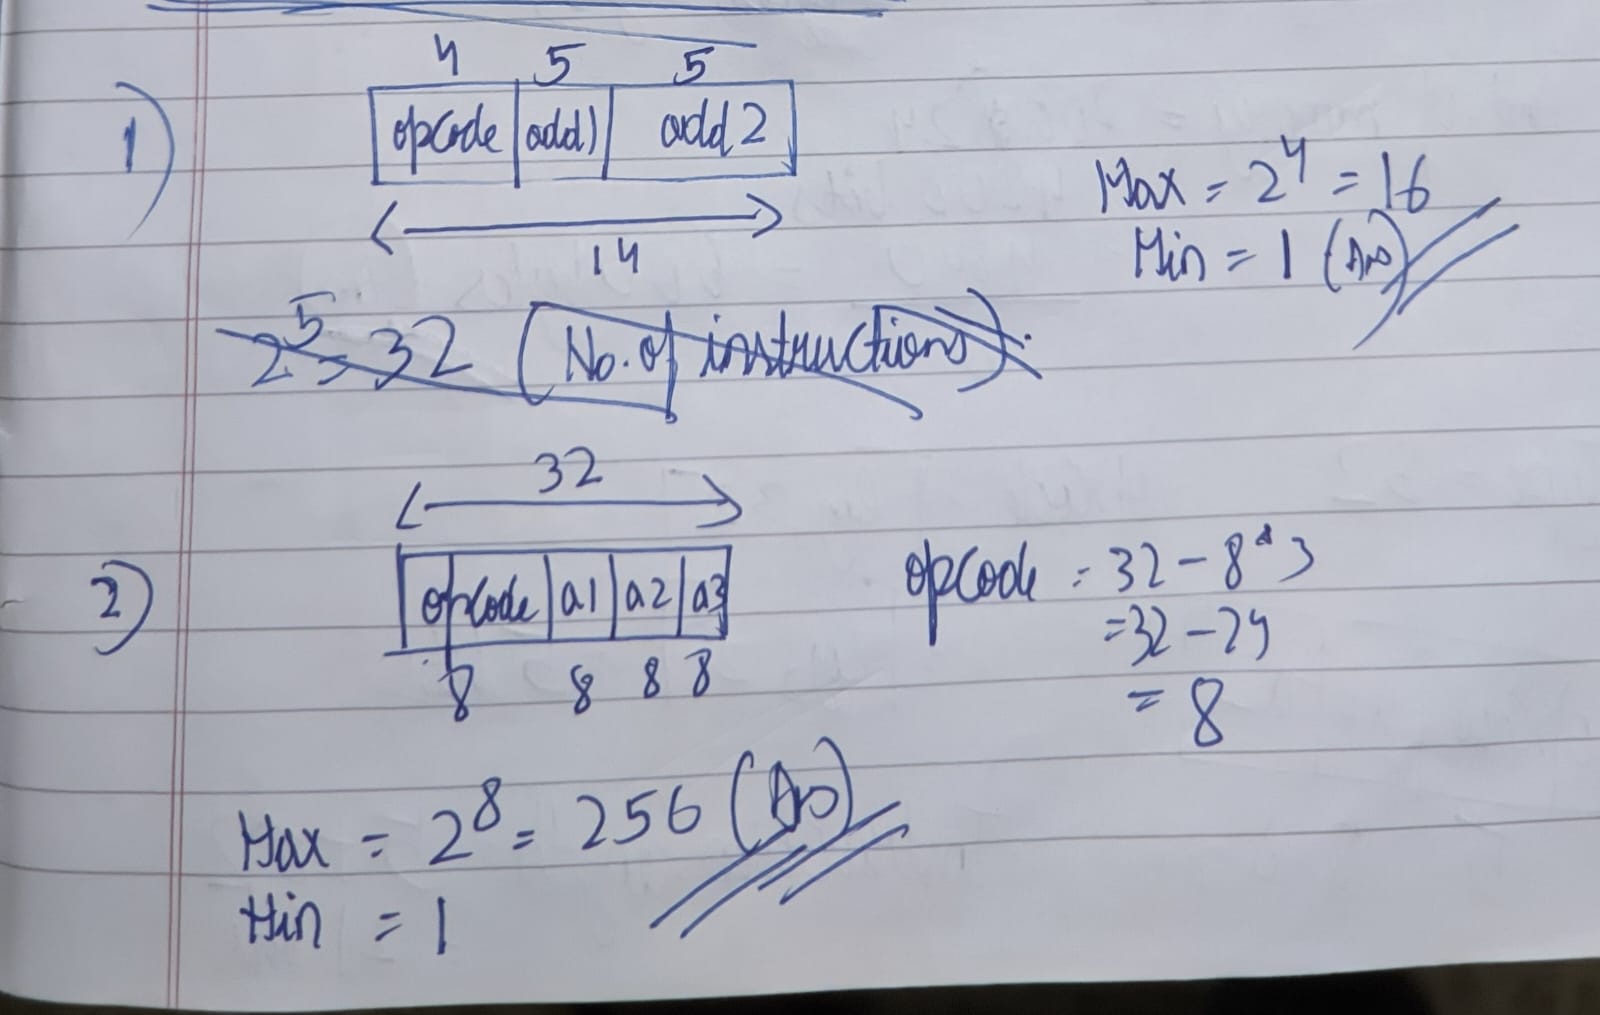 4 5 5
1) opcode add1 add2
14
Max = 2^4 = 16
Min = 1 (Ans)
2^5 = 32 (No. of instructions).
32
2) opcode a1 a2 a3
8 8 8 8
opcode = 32 - 8*3
= 32 - 24
= 8
Max = 2^8 = 256 (Ans)
Min = 1